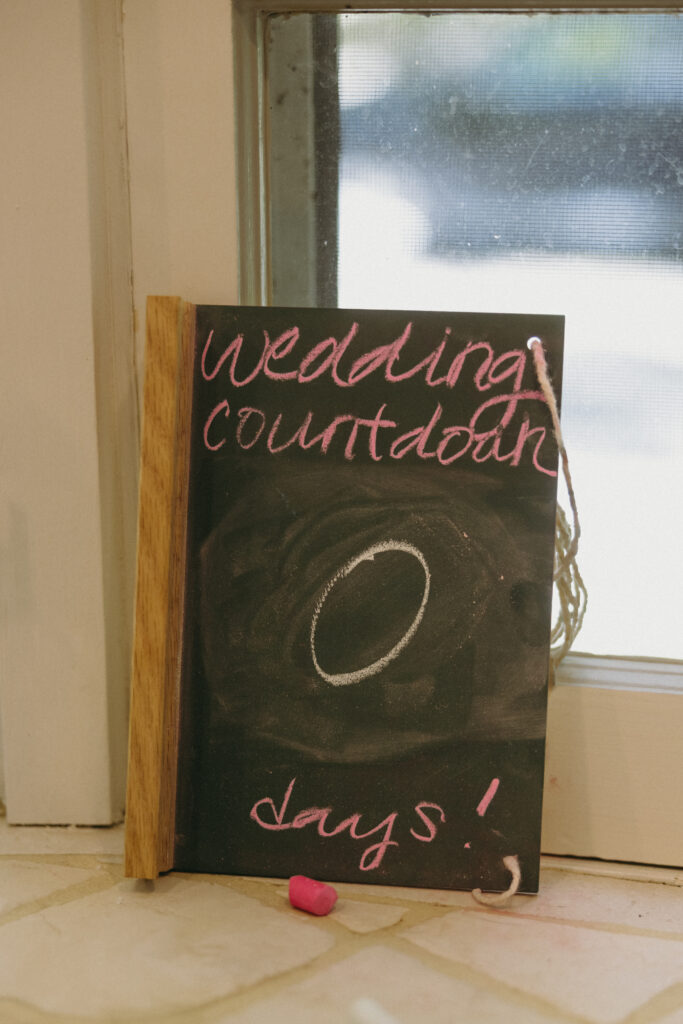 wedding
countdown
0
days!